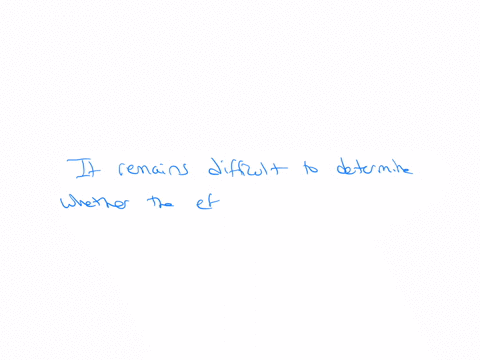 It remains difficult to determine
whether the ef